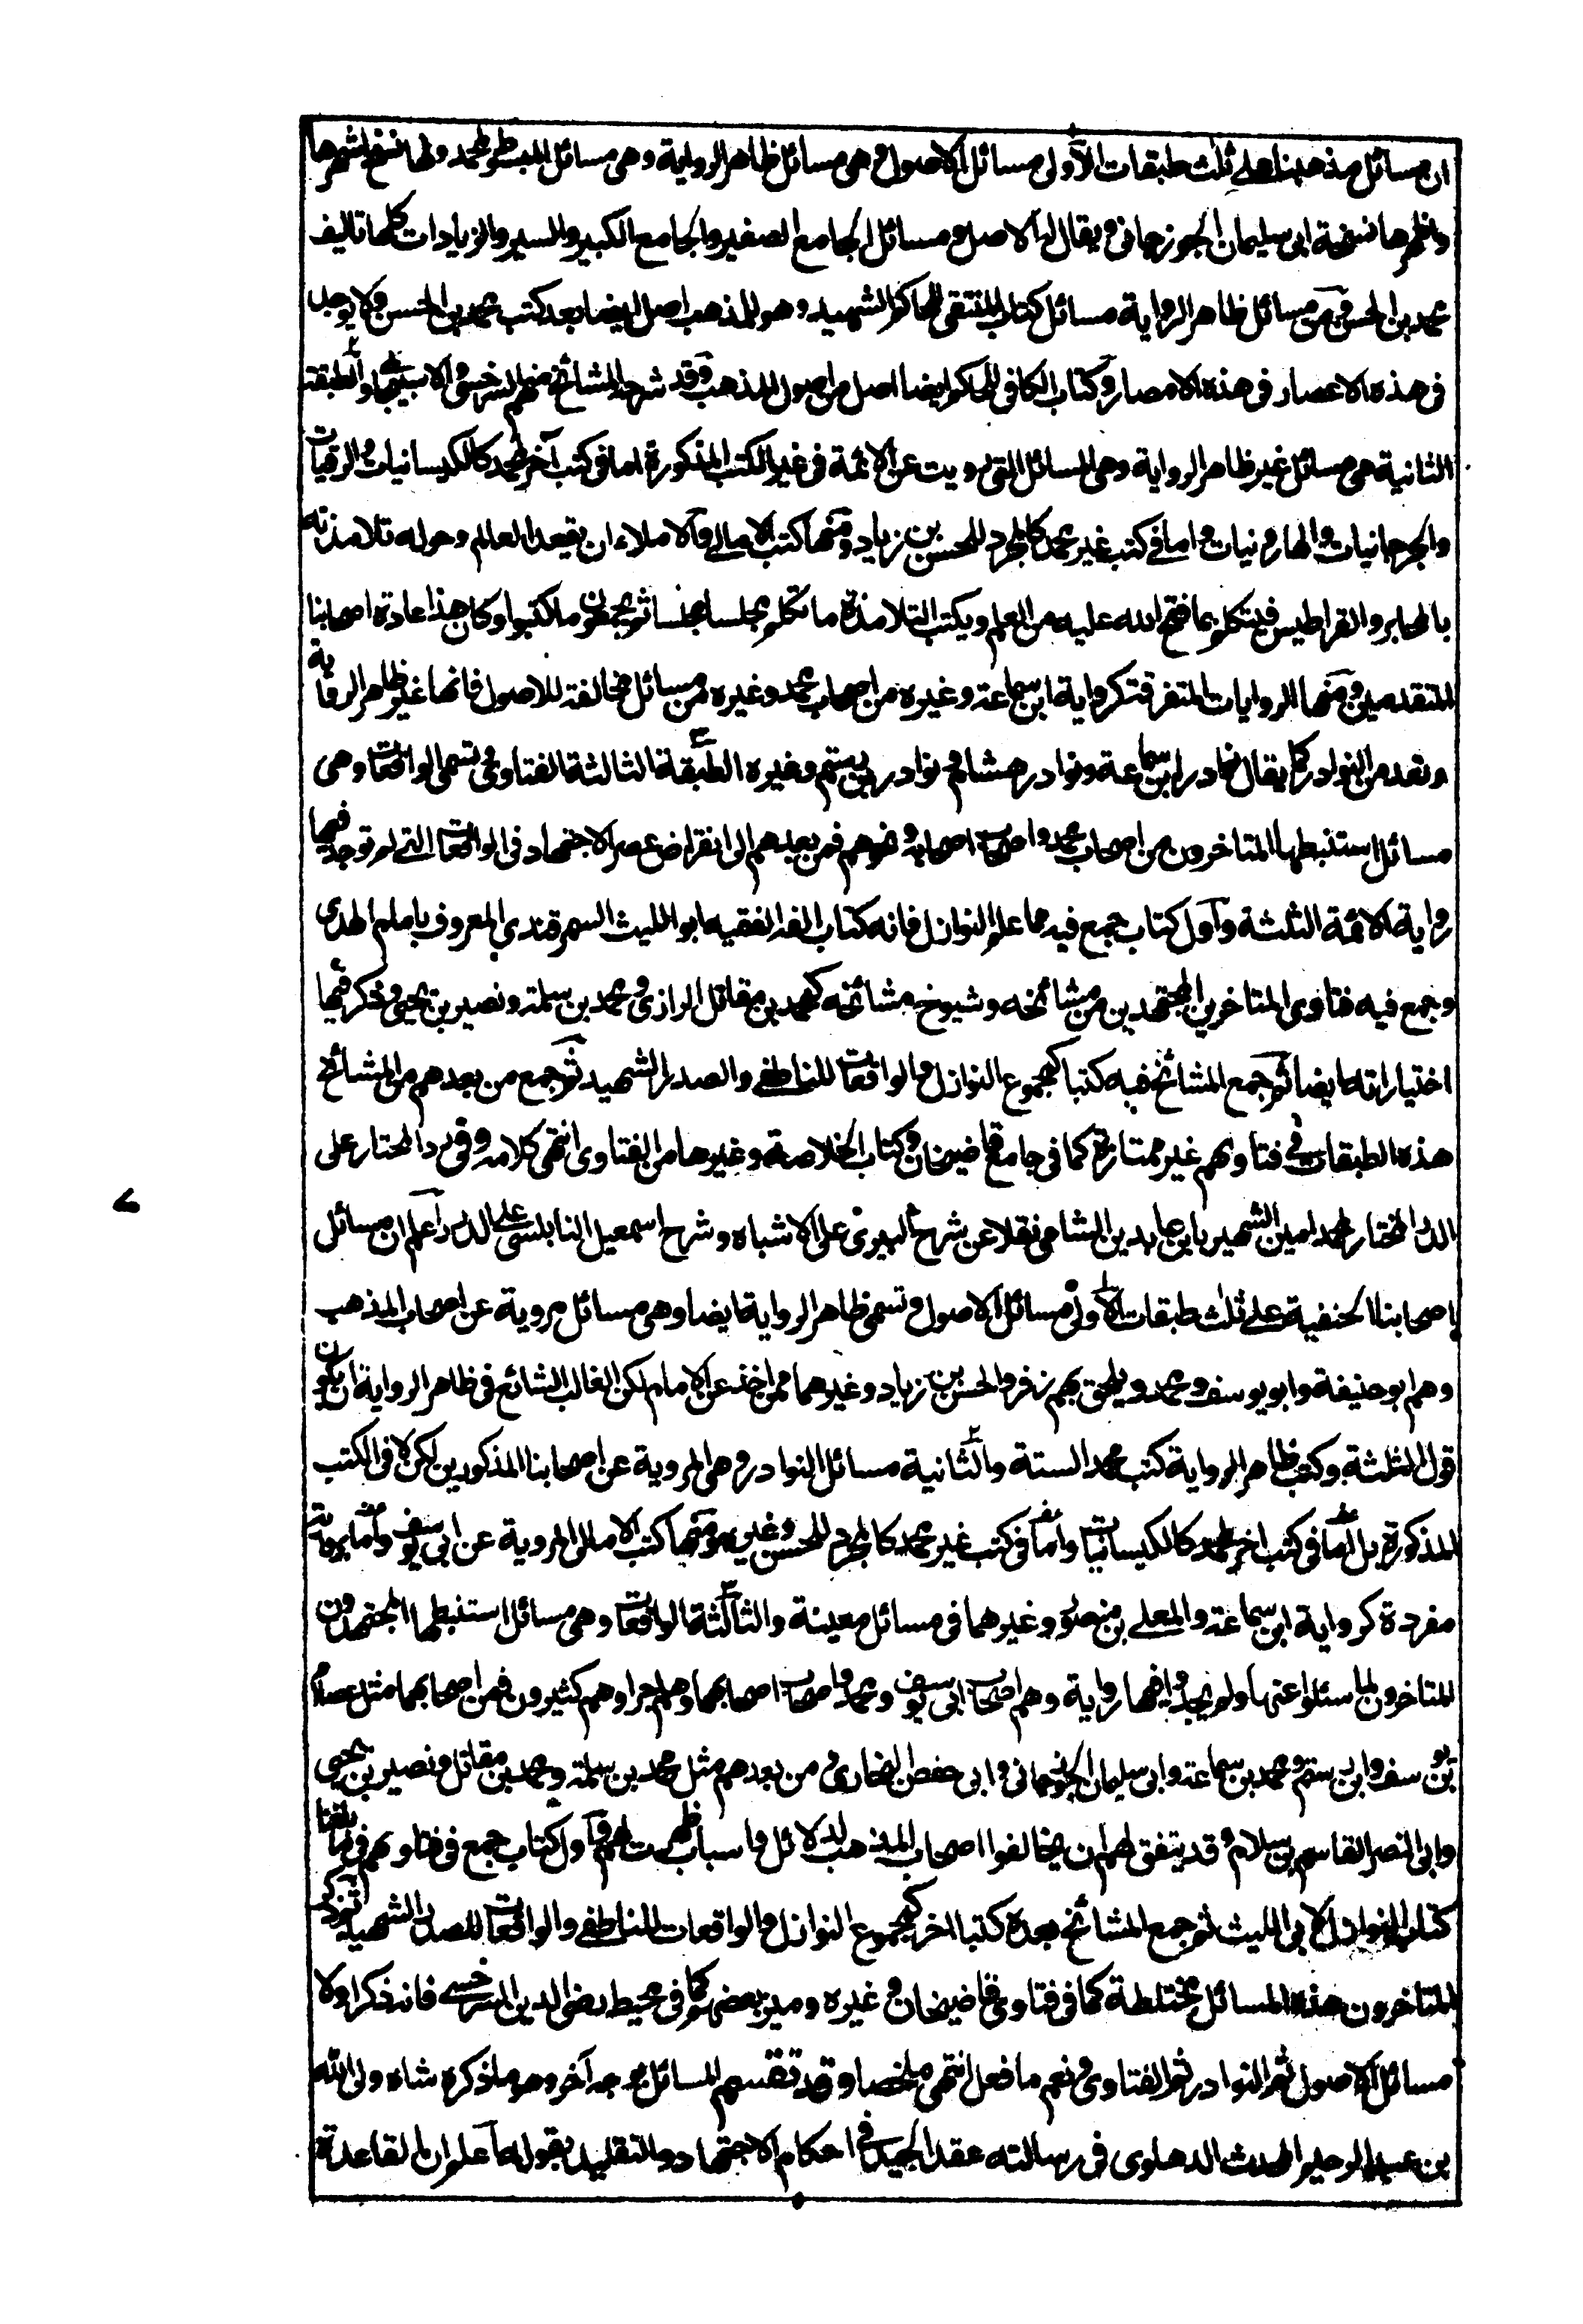 ان مسائل مذهبنا على ثلث طبقات الاولى مسائل الاصول وهي مسائل ظاهر الرواية وهي مسائل المبسوط لمحمد ولها نسخ اشهرها
واظهرها نسخة ابي سليمان الجوزجاني ويقال له الاصل ومسائل الجامع الصغير والجامع الكبير والسير والزيادات كلها تاليف
محمد بن الحسن ومن مسائل ظاهر الرواية مسائل كتاب المنتقى للحاكم الشهيد وهو للمذهب اصل ايضا بعد كتب محمد بن الحسن ولا يوجد
في هذه الاعصار في هذه الامصار وكتاب الكافي للحاكم ايضا اصل من اصول المذهب وقد شرحه المشائخ منهم السرخسي والاسبيجابي والطبقة
الثانية هي مسائل غير ظاهر الرواية وهي المسائل التي رويت عن الائمة في غير الكتب المذكورة اما في كتب آخر لمحمد كالكيسانيات والرقيات
والجرجانيات والهارونيات واما في كتب غير محمد كالمجرد للحسن بن زياد ومنها كتب الامالي والاملاء ان يقعد العالم وحوله تلامذته
بالمحابر والقراطيس فيتكلم بما فتح الله عليه من العلم ويكتب التلامذة ما تكلم مجلسا مجلسا ثم يجمعون ما كتبوا وكان هذا عادة اصحابنا
المتقدمين ومنها الروايات المتفرقة كرواية ابن سماعة وغيره من اصحاب محمد وغيره من مسائل مخالفة للاصول فانها غير ظاهر الرواية
وتعد من النوادر كما يقال نوادر ابن سماعة ونوادر هشام ونوادر بن رستم وغيره الطبقة الثالثة الفتاوى وتسمى الواقعات وهي
مسائل استنبطها المتاخرون من اصحاب محمد واصحاب اصحابه ونحوهم فمن بعدهم الى انقراض عصر الاجتهاد في الواقعات التي لم توجد فيها
رواية الائمة الثلثة واول كتاب جمع فيه مما علم النوازل فانه كتاب الفه الفقيه ابو الليث السمرقندي المعروف بامام الهدى
وجمع فيه فتاوى المتاخرين المجتهدين من مشائخه وشيوخ مشائخه كمحمد بن مقاتل الرازي ومحمد بن سلمة ونصير بن يحيى وذكر فيها
اختياراته ايضا ثم جمع المشائخ فيه كتبا كمجموع النوازل والواقعات للناطفي والصدر الشهيد ثم جمع من بعدهم من المشائخ
هذه الطبقات في فتاويهم غير ممتازة كما في جامع قاضيخان وكتاب الخلاصة وغيرها من الفتاوى انتهى كلامه وفي رد المحتار على
الدر المختار لمحمد امين الشهير بابن عابدين الشامي نقلا عن شرح البيري على الاشباه وشرح اسمعيل النابلسي على الدرر اعلم ان مسائل
اصحابنا الحنفية على ثلث طبقات الاولى مسائل الاصول وتسمى ظاهر الرواية ايضا وهي مسائل مروية عن اصحاب المذهب
وهم ابو حنيفة وابو يوسف ومحمد ويلحق بهم زفر والحسن بن زياد وغيرهما ممن اخذ عن الامام لكن الغالب الشائع في ظاهر الرواية ان يكون
قول الثلثة وكتب ظاهر الرواية كتب محمد الستة والثانية مسائل النوادر وهي المروية عن اصحابنا المذكورين لكن لا في الكتب
المذكورة بل اما في كتب اخر لمحمد كالكيسانيات واما في كتب غير محمد كالمجرد للحسن وغيره ومنها كتب الامالي المروية عن ابي يوسف واما برواية
مفردة كرواية ابن سماعة والمعلى بن منصور وغيرهما في مسائل معينة والثالثة الواقعات وهي مسائل استنبطها المجتهدون
المتاخرون لما سئلوا عنها ولم يجدوا فيها رواية وهم اصحاب ابي يوسف ومحمد واصحاب اصحابهما وهلم جرا وهم كثيرون فمن اصحابهما مثل عصام
بن يوسف وابن رستم ومحمد بن سماعة وابي سليمان الجوزجاني وابي حفص البخاري ومن بعدهم مثل محمد بن سلمة ومحمد بن مقاتل ونصير بن يحيى
وابي النصر القاسم بن سلام وقد يتفق لهم ان يخالفوا اصحاب المذهب لدلائل واسباب ظهرت لهم واول كتاب جمع في فتاويهم فيما بلغنا
كتاب النوازل لابي الليث ثم جمع المشائخ بعده كتبا اخر كمجموع النوازل والواقعات للناطفي والواقعات للصدر الشهيد ثم ذكر
المتاخرون هذه المسائل مختلطة كما في فتاوى قاضيخان وغيره وميز بعضهم كما في محيط رضي الدين السرخسي فانه ذكر اولا
مسائل الاصول ثم النوادر ثم الفتاوى ونعم ما فعل انتهى ملخصا وقد تقسم المسائل بوجه آخر وهو ما ذكره شاه ولي الله
بن عبد الرحيم المحدث الدهلوي في رسالته عقد الجيد في احكام الاجتهاد والتقليد بقوله اعلم ان القاعدة